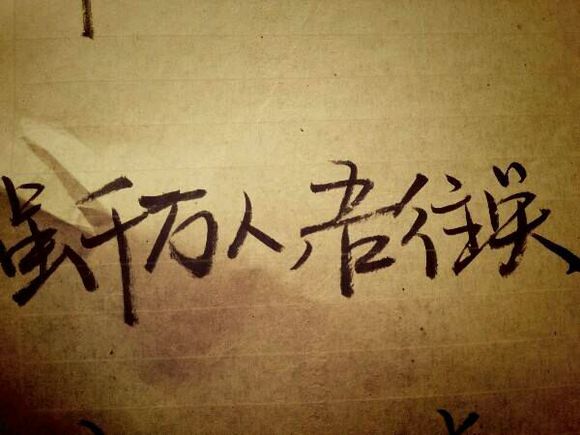 虽千万人吾往矣